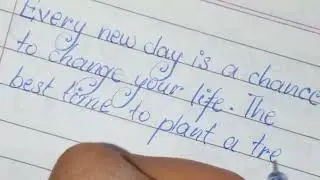 Every new day is a chance
to change your life. The
best time to plant a tre